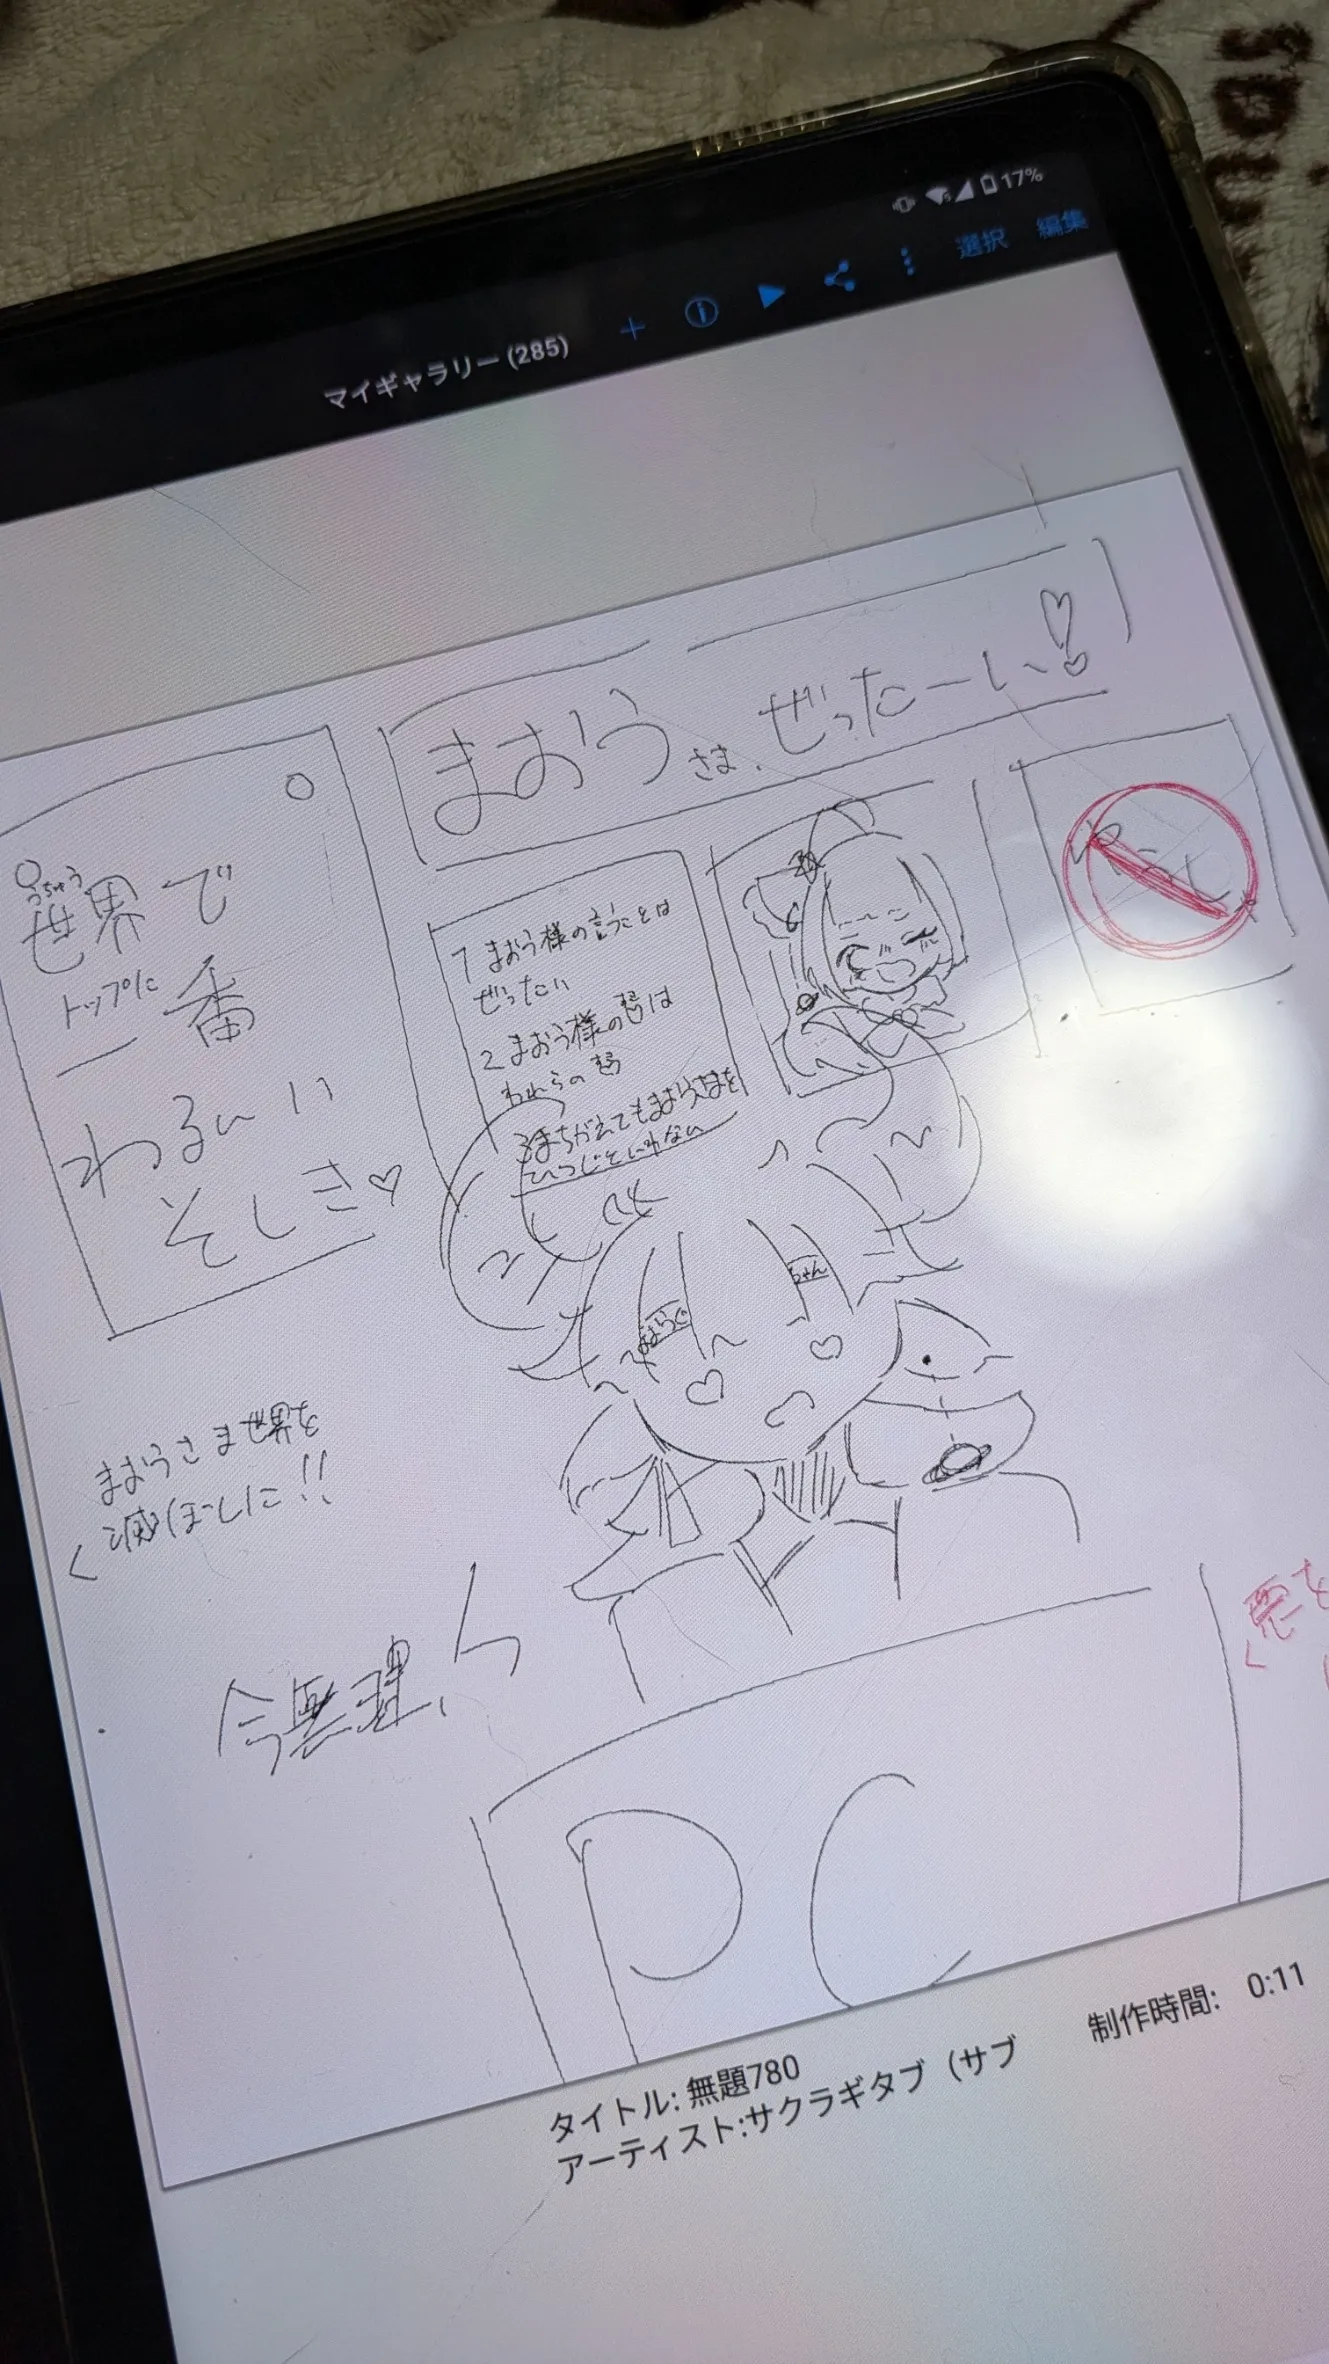 17%
選択 編集
マイギャラリー (285)
まおうさま、ぜったーい
うちゅう
世界で
トップに
一番
わるーい
そしき♡
1 まおう様の言うことは
ぜったい
2 まおう様の
われらの
3 まちがえてもまおうさまを
ひつじといわない
ちゃん
まおうさま世界を
滅ぼしに!!
今無理、
悪を
PC
タイトル: 無題780
アーティスト:サクラギタブ（サブ
制作時間: 0:11